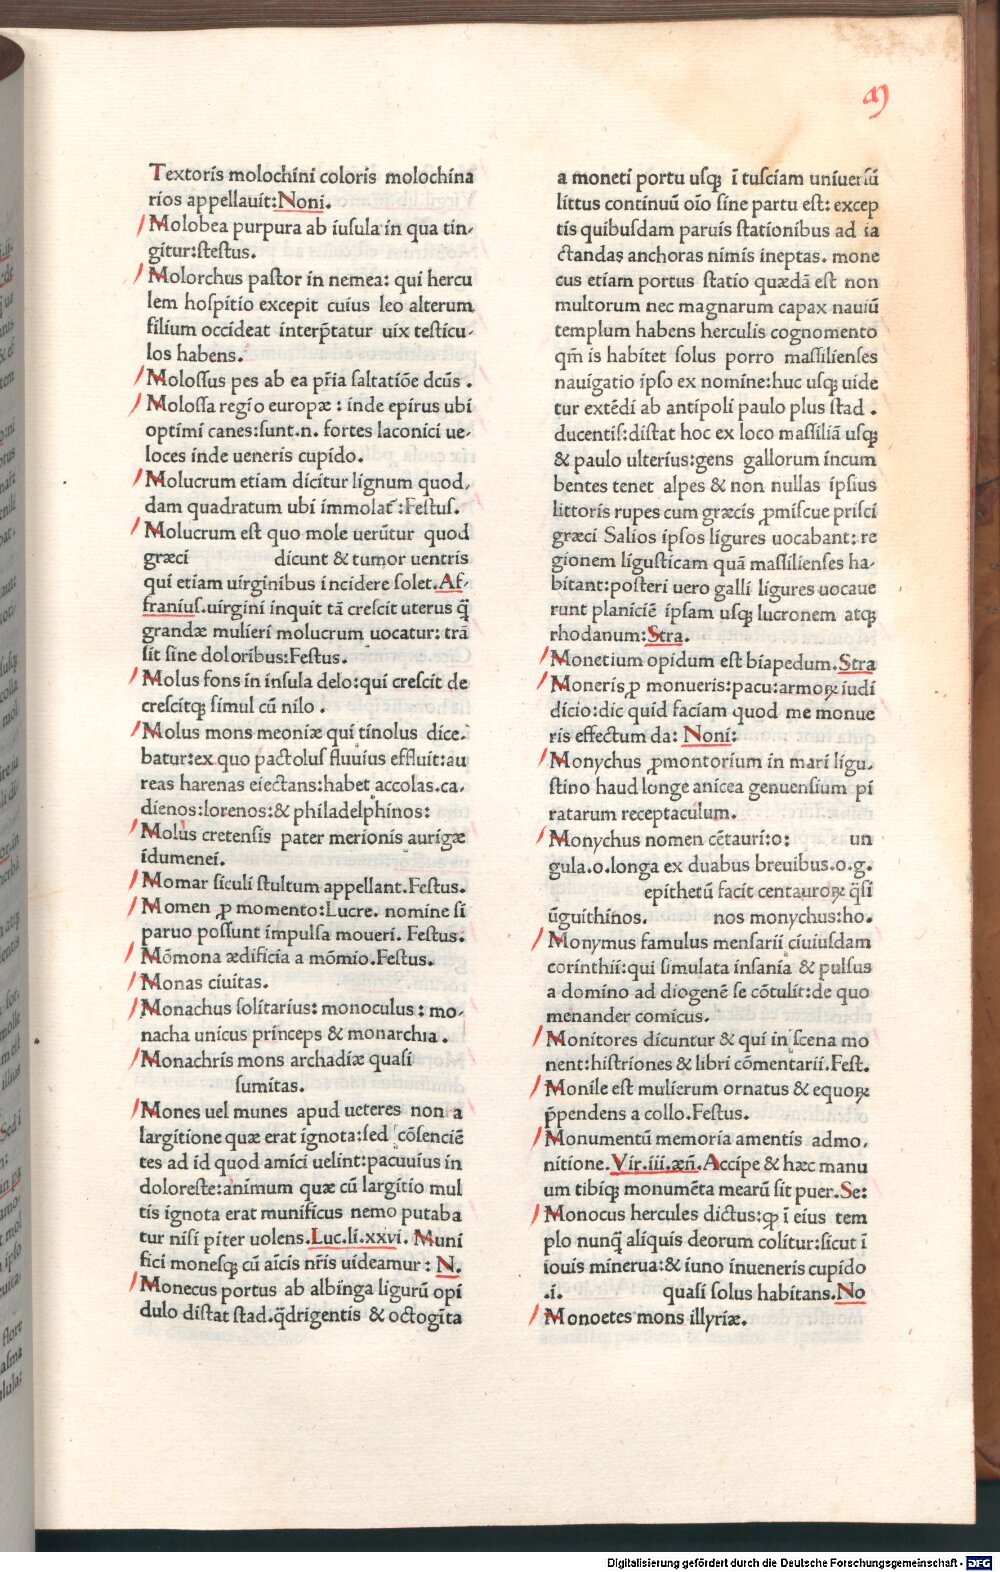 M
Textoris molochini coloris molochina
rios appellauit:Noni.
Molobea purpura ab iusula in qua tin-
gitur:ſteſtus.
Molorchus paſtor in nemea: qui hercu
lem hoſpitio excepit cuius leo alterum
filium occideat interp̄tatur uix teſticu-
los habens.
Moloſſus pes ab ea p̄ria ſaltatiōe dcūs .
Moloſſa regio europæ : inde epirus ubi
optimi canes:ſunt.n. fortes laconici ue-
loces inde ueneris cupido.
Molucrum etiam dicitur lignum quod,
dam quadratum ubi immolat̄:Feſtuſ.
Molucrum eſt quo mole uerūtur quod
græci dicunt & tumor uentris
qui etiam uirginibus incidere ſolet.Af-
franiuſ.uirgini inquit tā creſcit uterus q̄
grandæ mulieri molucrum uocatur: trā
ſit ſine doloribus:Feſtus.
Molus fons in inſula delo:qui creſcit de
creſcitqꝫ ſimul cū nilo .
Molus mons meoniæ qui tinolus dice.
batur:ex quo pactoluſ fluuius effluit:au
reas harenas eiectans:habet accolas.ca,
dienos:lorenos:& philadelphinos:
Molus cretenſis pater merionis aurigæ
idumenei.
Momar ſiculi ſtultum appellant.Feſtus.
Momen ꝓ momento:Lucre. nomine ſi
paruo poſſunt impulſa moueri. Feſtus.
Mōmona ædificia a mōmio.Feſtus.
Monas ciuitas.
Monachus ſolitarius: monoculus : mo-
nacha unicus princeps & monarchia .
Monachris mons archadiæ quaſi
ſumitas.
Mones uel munes apud ueteres non a
largitione quæ erat ignota:ſed cōſenciē
tes ad id quod amici uelint:pacuuius in
doloreſte:animum quæ cū largitio mul
tis ignota erat munificus nemo putaba
tur niſi piter uolens.Luc.li.xxvi. Muni
fici moneſqꝫ cū aīcis nr̄is uideamur : N.
Monecus portus ab albinga ligurū opi
dulo diſtat ſtad.q̄drigentis & octogīta
a moneti portu uſqꝫ ī tuſciam uniuerſū
littus continuū oīo ſine partu eſt: excep
tis quibuſdam paruis ſtationibus ad ia
ctandas anchoras nimis ineptas. mone
cus etiam portus ſtatio quædā eſt non
multorum nec magnarum capax nauiū
templum habens herculis cognomento
qm̄ is habitet ſolus porro maſſilienſes
nauigatio ipſo ex nomine:huc uſqꝫ uide
tur extēdi ab antipoli paulo plus ſtad .
ducentiſ:diſtat hoc ex loco maſſiliā uſqꝫ
& paulo ulterius:gens gallorum incum
bentes tenet alpes & non nullas ipſius
littoris rupes cum græcis ꝓmiſcue priſci
græci Salios ipſos ligures uocabant: re
gionem liguſticam quā maſſilienſes ha-
bitant:poſteri uero galli ligures uocaue
runt planiciē ipſam uſqꝫ lucronem atqꝫ
rhodanum:Stra.
Monetium opidum eſt biapedum.Stra
Moneris ꝓ monueris:pacu:armoꝝ iudi
dicio:dic quid faciam quod me monue
ris effectum da: Noni:
Monychus ꝓmontorium in mari ligu,
ſtino haud longe anicea genuenſium pi
ratarum receptaculum.
Monychus nomen cētauri:o: un
gula.o.longa ex duabus breuibus.o.g.
epithetū facit centauroꝝ q̄ſi
ūguithinos. nos monychus:ho.
Monymus famulus menſarii ciuiuſdam
corinthii:qui ſimulata inſania & pulſus
a domino ad diogenē ſe cōtulit:de quo
menander comicus.
Monitores dicuntur & qui in ſcena mo
nent:hiſtriones & libri cōmentarii.Feſt.
Monile eſt mulierum ornatus & equoꝝ
p̄pendens a collo.Feſtus.
Monumentū memoria amentis admo,
nitione.Vir.iii.æn̄.Accipe & hæc manu
um tibiqꝫ monumēta mearū ſit puer.Se:
Monocus hercules dictus:ꝙ ī eius tem
plo nunq̄ aliquis deorum colitur:ſicut ī
iouis minerua:& iuno inueneris cupido
.i. quaſi ſolus habitans.No
Monoetes mons illyriæ.
Digitalisierung gefördert durch die Deutsche Forschungsgemeinschaft - DFG